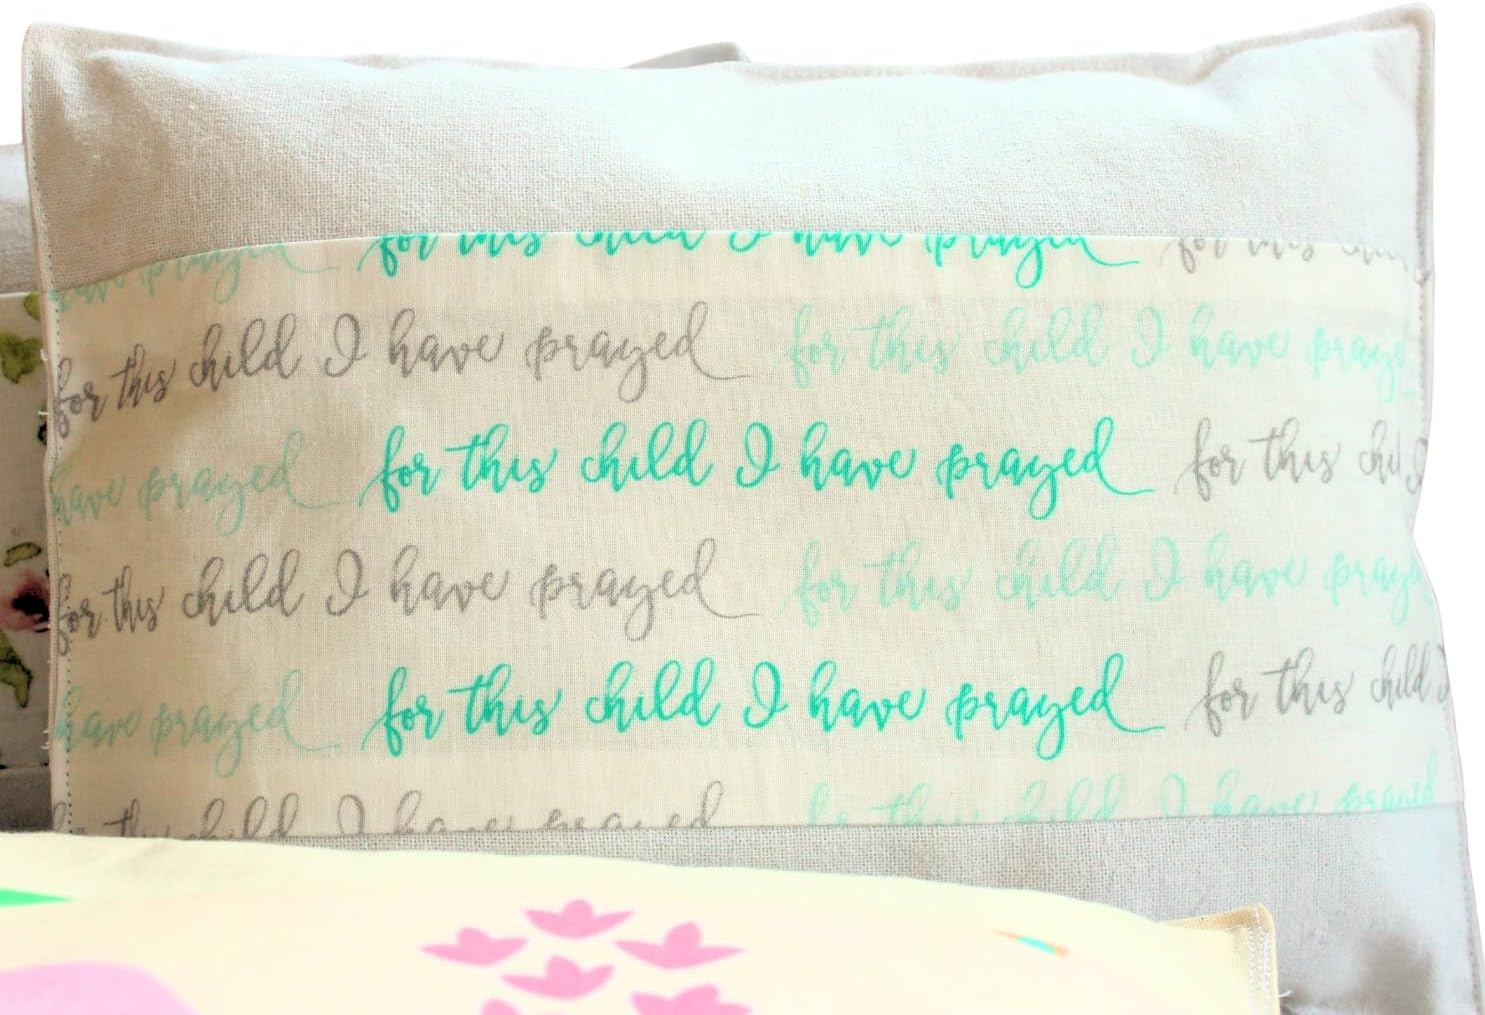 have prayed for this child I have prayed for this
for this child I have prayed for this child I have
have prayed for this child I have prayed for this
for this child I have prayed for this child I have
have prayed for this child I have prayed for this child
for this child I have prayed for this child I have prayed